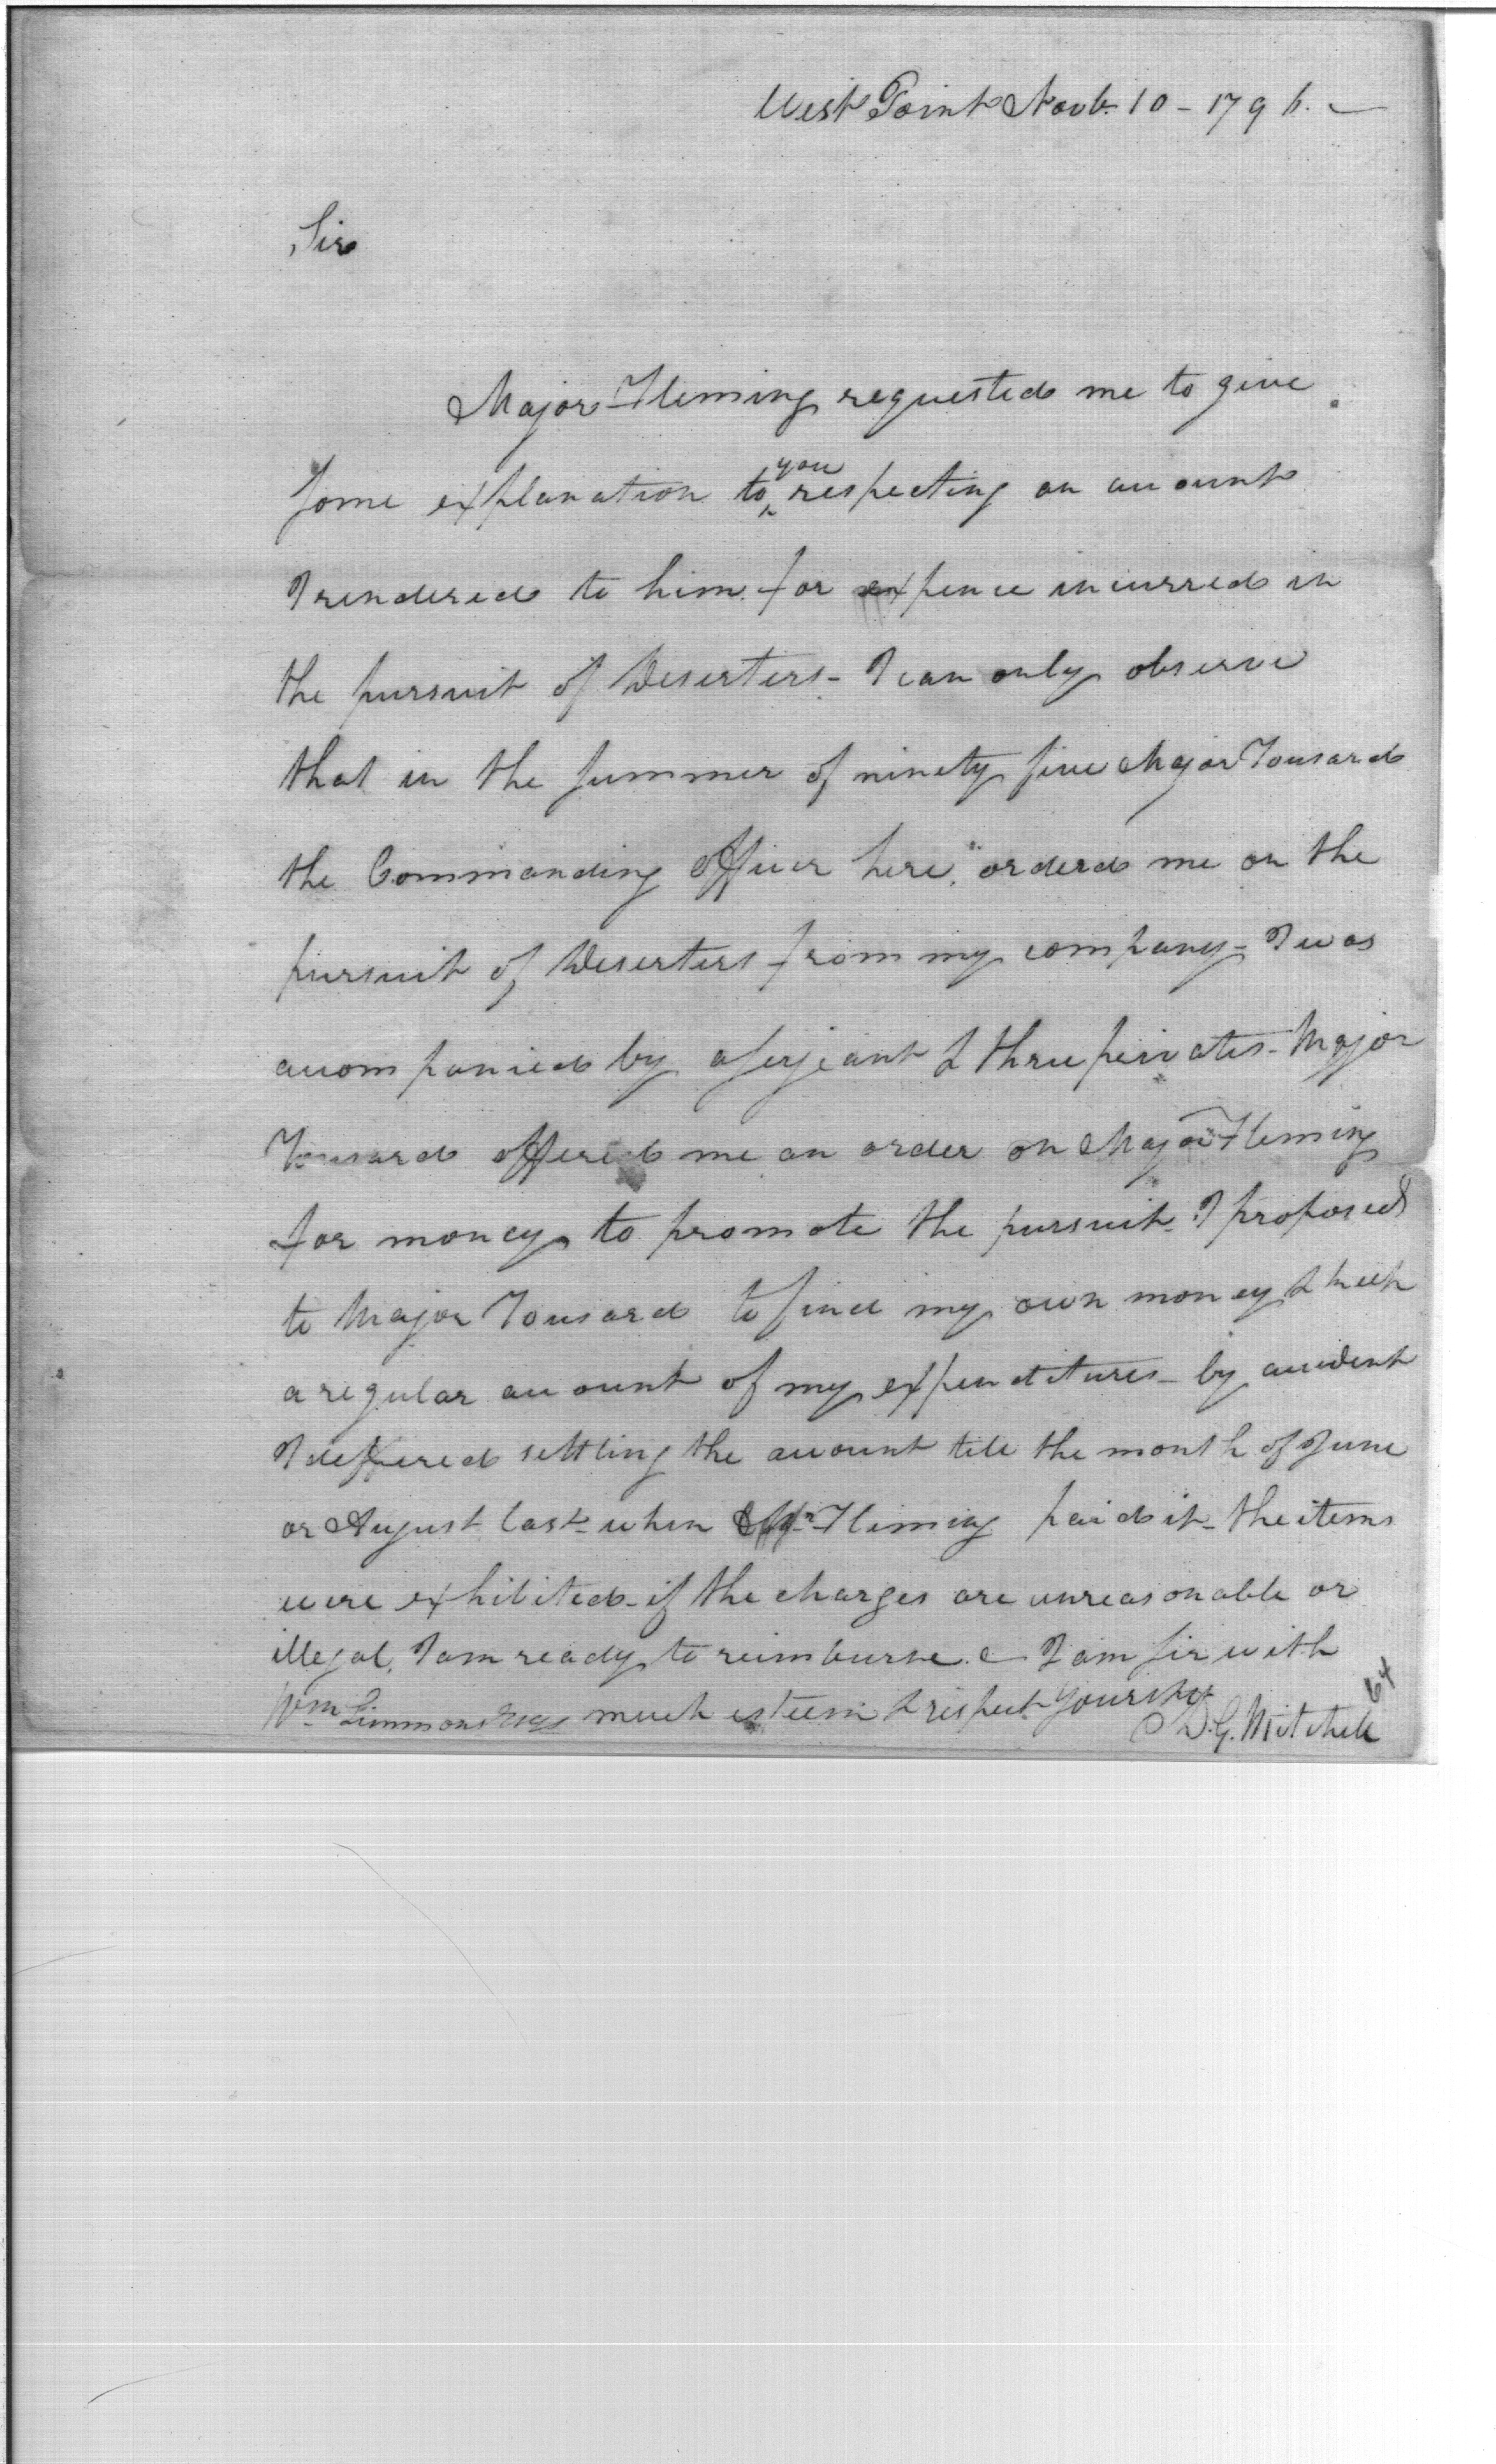 West Point Novb. 10 - 1796. —
Sir
Major Fleming requested me to give
some explanation to you respecting an account
I rendered to him for expence incurred in
the pursuit of Deserters - I can only observe
that in the summer of ninety five Major Tousard
the Commanding officer here, ordered me on the
pursuit of Deserters from my company - I was
accompanied by a serjeant & three privates - Major
Tousard offered me an order on Major Fleming
for money to promote the pursuit. I proposed
to Major Tousard to find my own money & keep
a regular account of my expenditures - by accident
I deffered settling the account till the month of June
or August last - when Majr. Fleming paid it - the items
were exhibited - if the charges are unreasonable or
illegal, I am ready to reimburse. I am sir with
much esteem & respect Yours
Wm Simmons Esqr
D.G. Mitchell
64